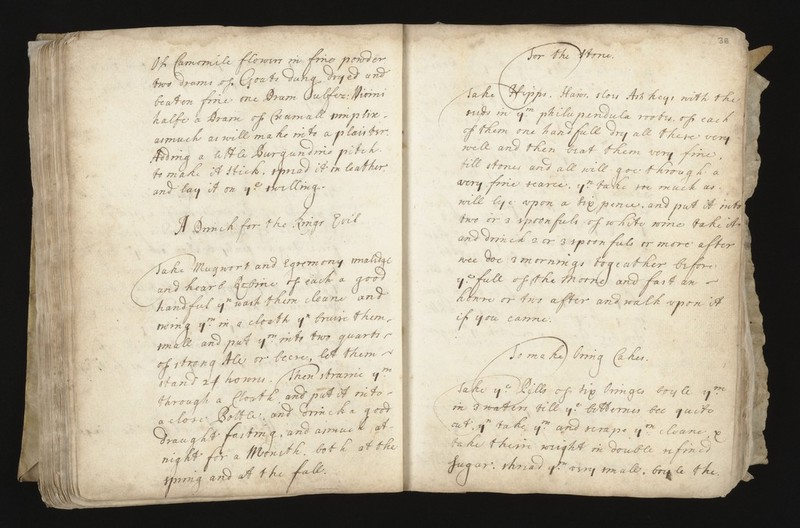 Of Camomile flowers in fine powder
two drams of Goats dung dryed and
beaten fine one Dram Sulfer Vivini
halfe a Dram of Oramall simplix.
asmuch as will make into a plaister.
Adding a little Burgundine pitch
to make it stick. spread it on leather
and lay it on ye swelling.
A Drinck for the Kings Evil
Take Mugwort and Egremony
and hearts of each a good
handful yn wash them cleane and
wring ym in a cloath yn bruise them
small and put ym into two quarts
of strong Ale or beere, let them
stand 24 howrs. Then straine ym
through a Cloath and put it into
a close Bottle and drinck a good
draught fasting, and asmuch at
night for a Moneth. both at the
spring and at the fall.
38
For the stone.
Take Hipps. Haws. slows Ash keys with the
seeds in ym philupendula roots. of each
of them one handfull dry all these very
well and then beat them very fine.
till stones and all will goe through a
very fine searce. yn take soe much as
will lye upon a six pence. and put it into
two or 3 spoonfuls of white wine take it
and drinck 2 or 3 spoonfuls or more after
wee doe 3 mornings togeather before
ye full of the Moone and fast an
howre or two after and walk upon it
if you canne.
To make bring Cakes.
Take ye Pills of six bringes boyle ym
in 3 waters till ye bitternes bee quite
out. yn take ym and scrape ym cleane &
take their weight in double refined
Sugar. shred ym very small. boyle the